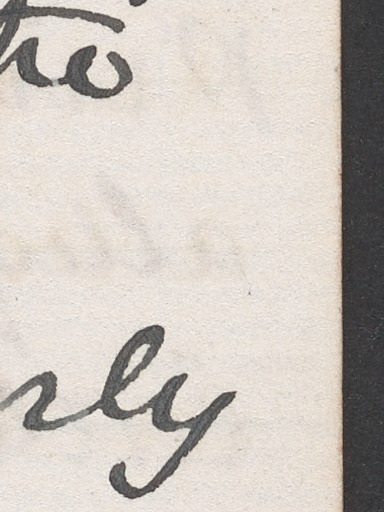 tho
rly